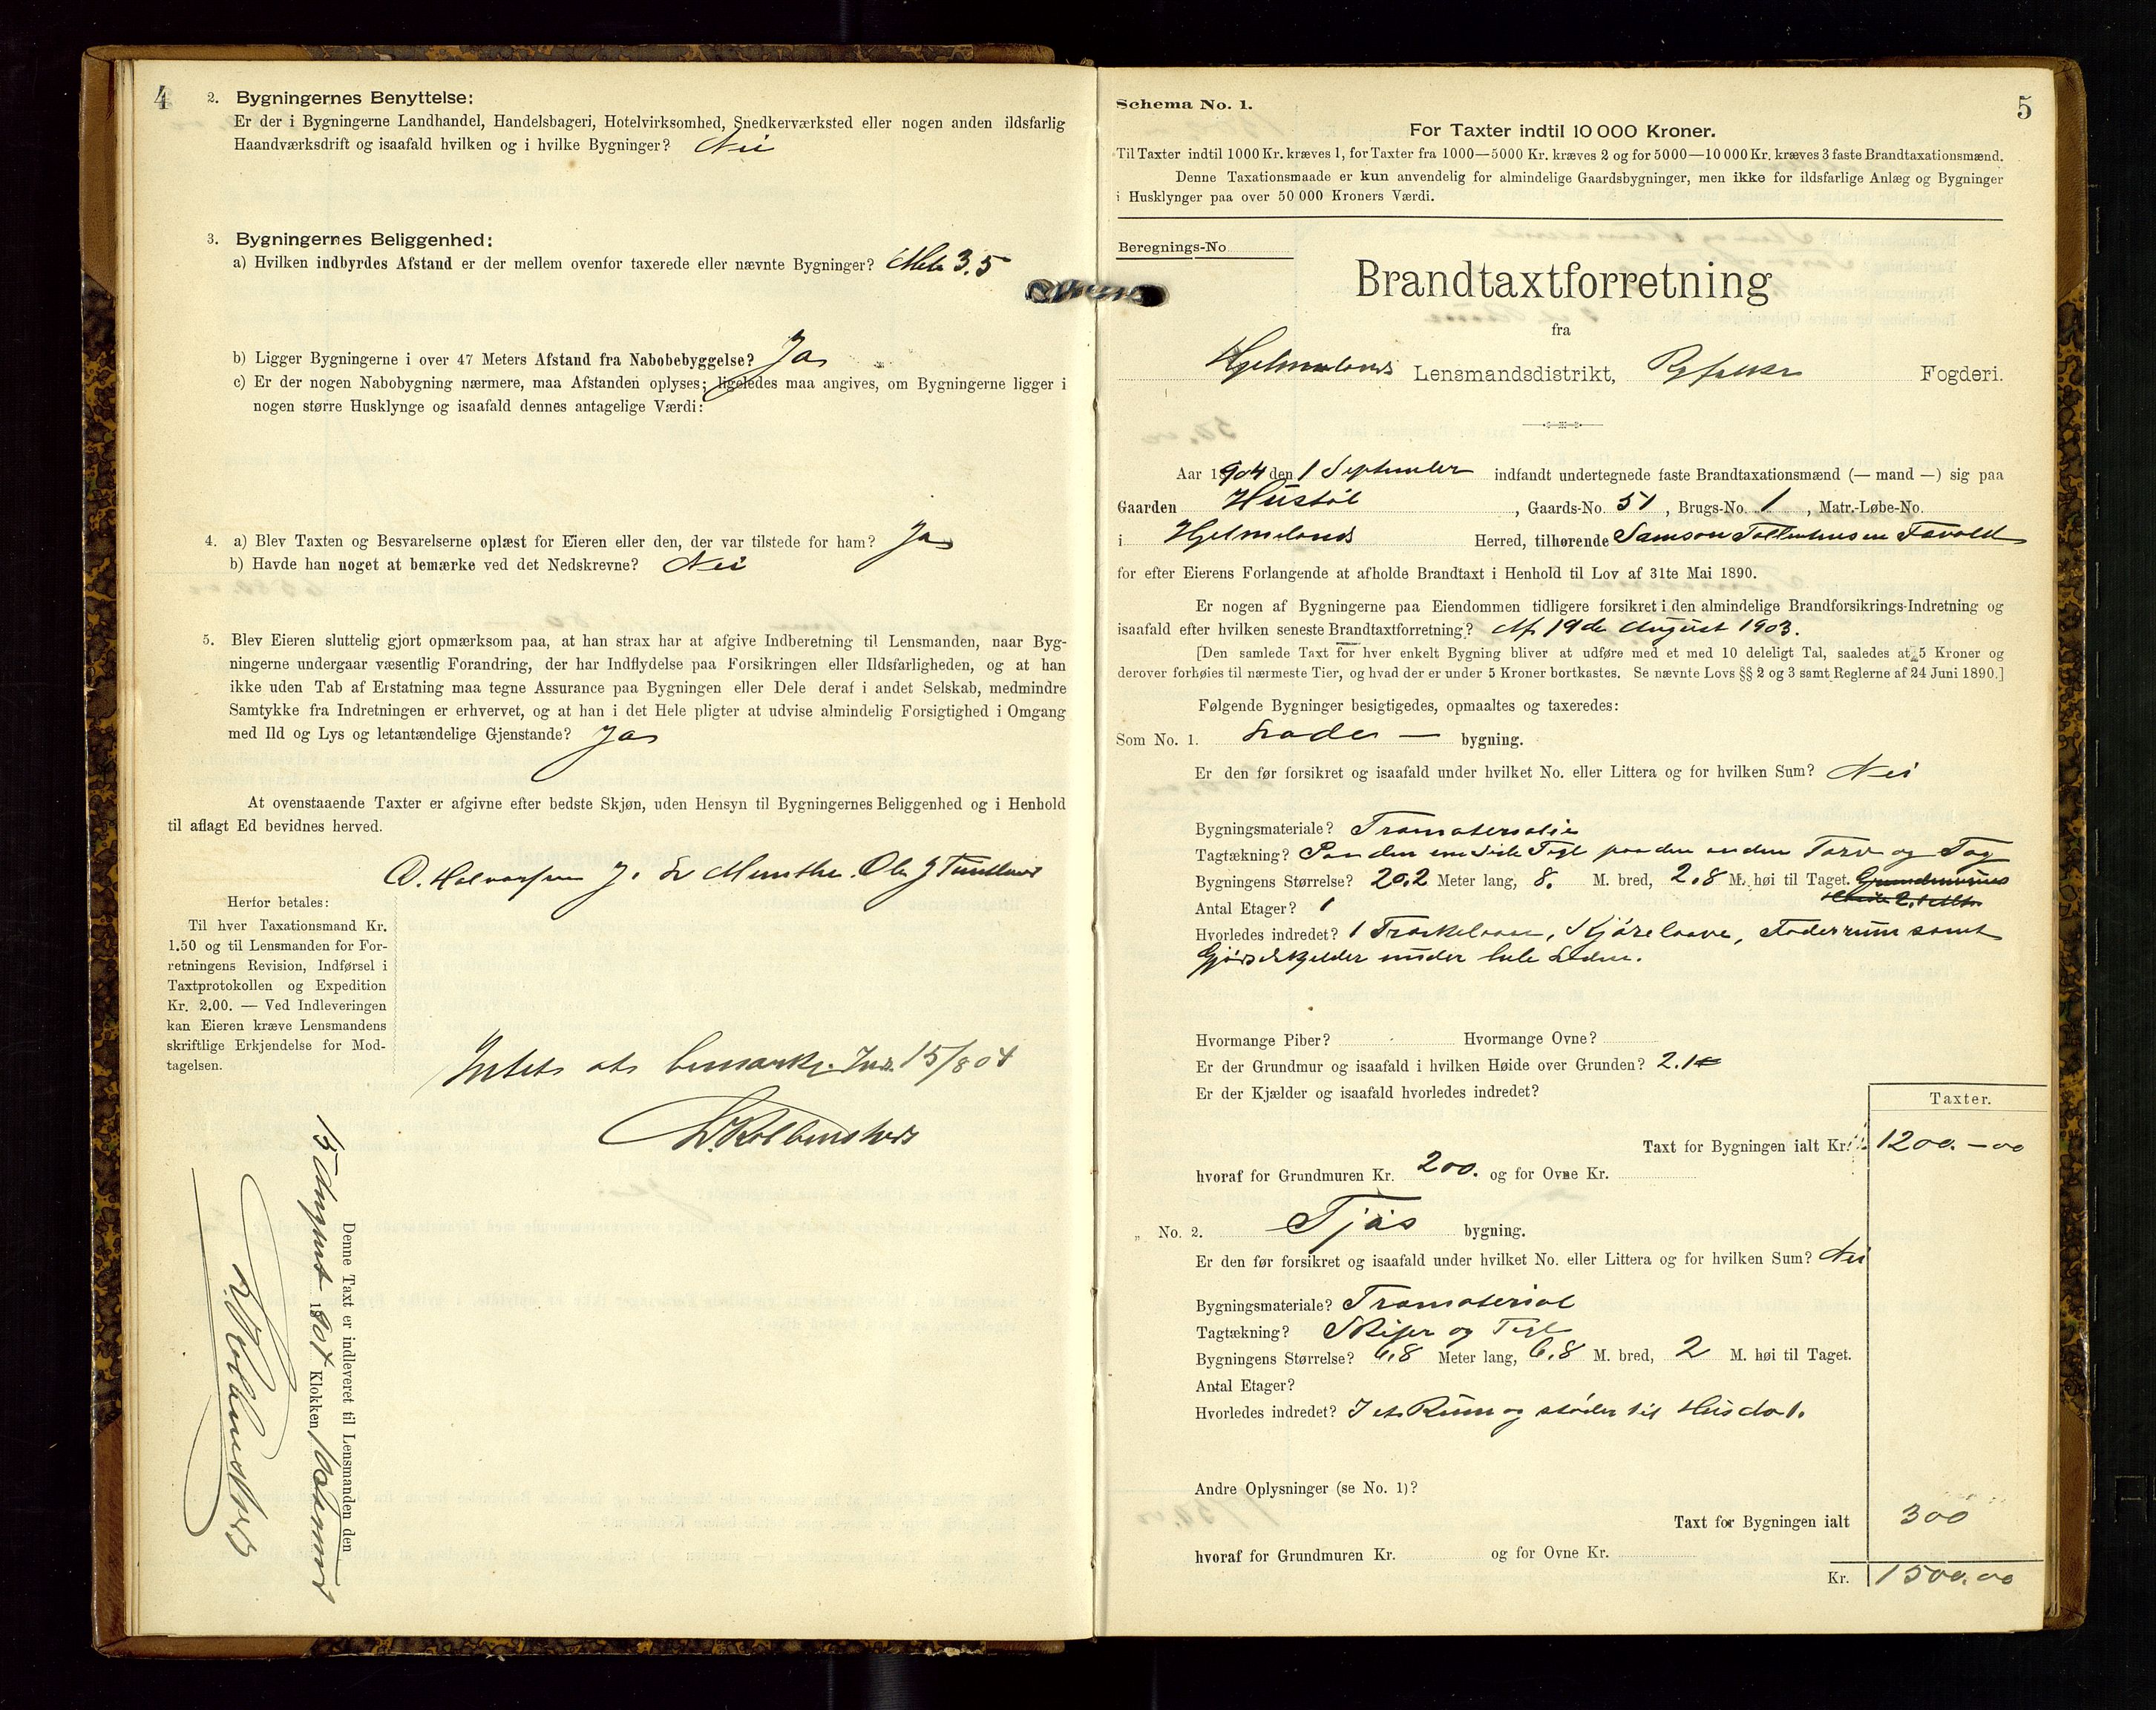 4
2. Bygningernes Benyttelse:
Er der i Bygningerne Landhandel, Handelsbageri, Hotelvirksomhed, Snedkerværksted eller nogen anden ildsfarlig
Haandværksdrift og isaafald hvilken og i hvilke Bygninger? Nei
3. Bygningernes Beliggenhed:
a) Hvilken indbyrdes Afstand er der mellem ovenfor taxerede eller nævnte Bygninger? Mtr 3.5
b) Ligger Bygningerne i over 47 Meters Afstand fra Nabobebyggelse? Ja
c) Er der nogen Nabobygning nærmere, maa Afstanden oplyses; ligeledes maa angives, om Bygningerne ligger i
nogen større Husklynge og isaafald dennes antagelige Værdi:
4. a) Blev Taxten og Besvarelserne oplæst for Eieren eller den, der var tilstede for ham? Ja
b) Havde han noget at bemærke ved det Nedskrevne? Nei
5. Blev Eieren sluttelig gjort opmærksom paa, at han strax har at afgive Indberetning til Lensmanden, naar Byg-
ningerne undergaar væsentlig Forandring, der har Indflydelse paa Forsikringen eller Ildsfarligheden, og at han
ikke uden Tab af Erstatning maa tegne Assurance paa Bygningen eller Dele deraf i andet Selskab, medmindre
Samtykke fra Indretningen er erhvervet, og at han i det Hele pligter at udvise almindelig Forsigtighed i Omgang
med Ild og Lys og letantændelige Gjenstande? Ja
At ovenstaaende Taxter er afgivne efter bedste Skjøn, uden Hensyn til Bygningernes Beliggenhed og i Henhold
til aflagt Ed bevidnes herved.
O. Halvorsen J. Munthe. Ole J
Herfor betales:
Til hver Taxationsmand Kr.
1.50 og til Lensmanden for For-
retningens Revision, Indførsel i
Taxtprotokollen og Expedition
Kr. 2.00. — Ved Indleveringen
kan Eieren kræve Lensmandens
skriftlige Erkjendelse for Mod-
tagelsen.
Intet at bemærke. 15/8 04
Denne Taxt er indleveret til Lensmanden den
15 August 1904 Klokken
Schema No. 1.
5
For Taxter indtil 10 000 Kroner.
Til Taxter indtil 1000 Kr. kræves 1, for Taxter fra 1000—5000 Kr. kræves 2 og for 5000—10 000 Kr. kræves 3 faste Brandtaxationsmænd.
Denne Taxationsmaade er kun anvendelig for almindelige Gaardsbygninger, men ikke for ildsfarlige Anlæg og Bygninger
i Husklynger paa over 50 000 Kroners Værdi.
Beregnings-No
Brandtaxtforretning
fra
Hjelmelands Lensmandsdistrikt, Ryfylke Fogderi.
Aar 1904 den 1 September indfandt undertegnede faste Brandtaxationsmænd (— mand —) sig paa
Gaarden Hustøl, Gaards-No. 51, Brugs-No. 1, Matr.-Løbe-No.
i Hjelmelands Herred, tilhørende Samson
for efter Eierens Forlangende at afholde Brandtaxt i Henhold til Lov af 31te Mai 1890.
Er nogen af Bygningerne paa Eiendommen tidligere forsikret i den almindelige Brandforsikrings-Indretning og
isaafald efter hvilken seneste Brandtaxtforretning? Af 19de August 1903.
[Den samlede Taxt for hver enkelt Bygning bliver at udføre med et med 10 deleligt Tal, saaledes at 5 Kroner og
derover forhøies til nærmeste Tier, og hvad der er under 5 Kroner bortkastes. Se nævnte Lovs §§ 2 og 3 samt Reglerne af 24 Juni 1890.]
Følgende Bygninger besigtigedes, opmaaltes og taxeredes:
Som No. 1. Lade — bygning.
Er den før forsikret og isaafald under hvilket No. eller Littera og for hvilken Sum? Nei
Bygningsmateriale? Træmateriale
Tagtækning? Paa den ene Side Tegl paa den anden Torv og Tag
Bygningens Størrelse? 20.2 Meter lang, 8. M. bred, 2.8 M. høi til Taget. Grundmurens
Høide 2.1 Mtr
Antal Etager? 1
Hvorledes indredet? 1 Træskelaave, Kjørelaave, Foderrum samt
Gjødselkjelder under hele Laden.
Hvormange Piber? Hvormange Ovne?
Er der Grundmur og isaafald i hvilken Høide over Grunden? 2.1
Er der Kjælder og isaafald hvorledes indredet?
Taxter.
Taxt for Bygningen ialt Kr. 1200.—00
hvoraf for Grundmuren Kr. 200. og for Ovne Kr.
„ No. 2. Fjøs bygning.
Er den før forsikret og isaafald under hvilket No. eller Littera og for hvilken Sum? Nei
Bygningsmateriale? Træmaterial
Tagtækning? Skifer og Tegl
Bygningens Størrelse? 6.8 Meter lang, 6.8 M. bred, 2 M. høi til Taget.
Antal Etager?
Hvorledes indredet? I et Rum og støder til Hus No 1.
Andre Oplysninger (se No. 1)?
Taxt for Bygningen ialt 300
hvoraf for Grundmuren Kr. og for Ovne Kr.
Kr. 1500.00